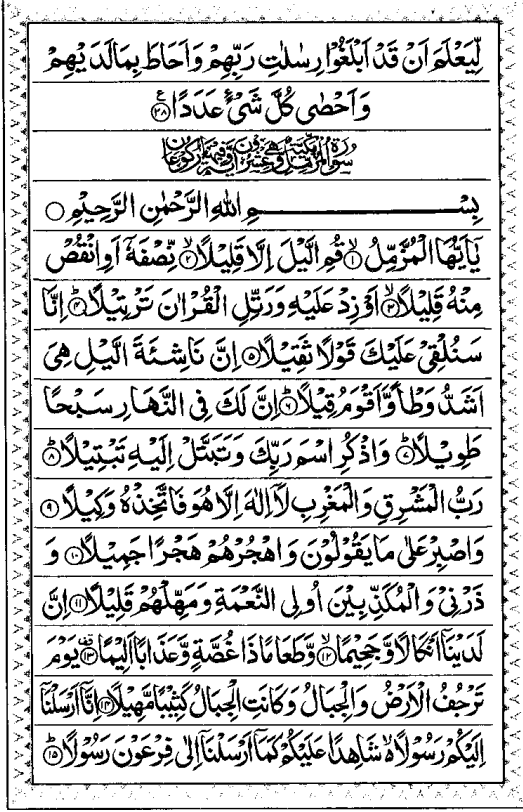 لِّيَعۡلَمَ اَنۡ قَدۡ اَبۡلَغُوۡا رِسٰلٰتِ رَبِّهِمۡ وَاَحَاطَ بِمَا لَدَيۡهِمۡ
وَاَحۡصٰى كُلَّ شَىۡءٍ عَدَدًا ﴿۲۸﴾ ع
بِسۡمِ اللّٰهِ الرَّحۡمٰنِ الرَّحِيۡمِ ○
يٰۤاَيُّهَا الۡمُزَّمِّلُ ۙ‏ ﴿۱﴾ قُمِ الَّيۡلَ اِلَّا قَلِيۡلًا ۙ‏ ﴿۲﴾ نِّصۡفَهٗۤ اَوِ انْقُصۡ
مِنۡهُ قَلِيۡلًا ۙ‏ ﴿۳﴾ اَوۡ زِدۡ عَلَيۡهِ وَرَتِّلِ الۡقُرۡاٰنَ تَرۡتِيۡلًا ؕ‏ ﴿۴﴾ اِنَّا
سَنُلۡقِىۡ عَلَيۡكَ قَوۡلًا ثَقِيۡلًا‏ ﴿۵﴾ اِنَّ نَاشِئَةَ الَّيۡلِ هِىَ
اَشَدُّ وَطۡـاً وَّاَقۡوَمُ قِيۡلًا ؕ‏ ﴿۶﴾ اِنَّ لَكَ فِى النَّهَارِ سَبۡحًا
طَوِيۡلًا ؕ‏ ﴿۷﴾ وَاذۡكُرِ اسۡمَ رَبِّكَ وَتَبَتَّلۡ اِلَيۡهِ تَبۡتِيۡلًا ؕ‏ ﴿۸﴾
رَبُّ الۡمَشۡرِقِ وَالۡمَغۡرِبِ لَاۤ اِلٰهَ اِلَّا هُوَ فَاتَّخِذۡهُ وَكِيۡلًا‏ ﴿۹﴾
وَاصۡبِرۡ عَلٰى مَا يَقُوۡلُوۡنَ وَاهۡجُرۡهُمۡ هَجۡرًا جَمِيۡلًا‏ ﴿۱۰﴾ وَ
ذَرۡنِىۡ وَالۡمُكَذِّبِيۡنَ اُولِى النَّعۡمَةِ وَمَهِّلۡهُمۡ قَلِيۡلًا‏ ﴿۱۱﴾ اِنَّ
لَدَيۡنَاۤ اَنۡكَالًا وَّجَحِيۡمًا ۙ‏ ﴿۱۲﴾ وَّطَعَامًا ذَا غُصَّةٍ وَّعَذَابًا اَلِيۡمًا ﴿۱۳﴾ يَوۡمَ
تَرۡجُفُ الۡاَرۡضُ وَالۡجِبَالُ وَكَانَتِ الۡجِبَالُ كَثِيۡبًا مَّهِيۡلًا‏ ﴿۱۴﴾ اِنَّاۤ اَرۡسَلۡنَاۤ
اِلَيۡكُمۡ رَسُوۡلًا ۙ شَاهِدًا عَلَيۡكُمۡ كَمَاۤ اَرۡسَلۡنَاۤ اِلٰى فِرۡعَوۡنَ رَسُوۡلًا ؕ‏ ﴿۱۵﴾